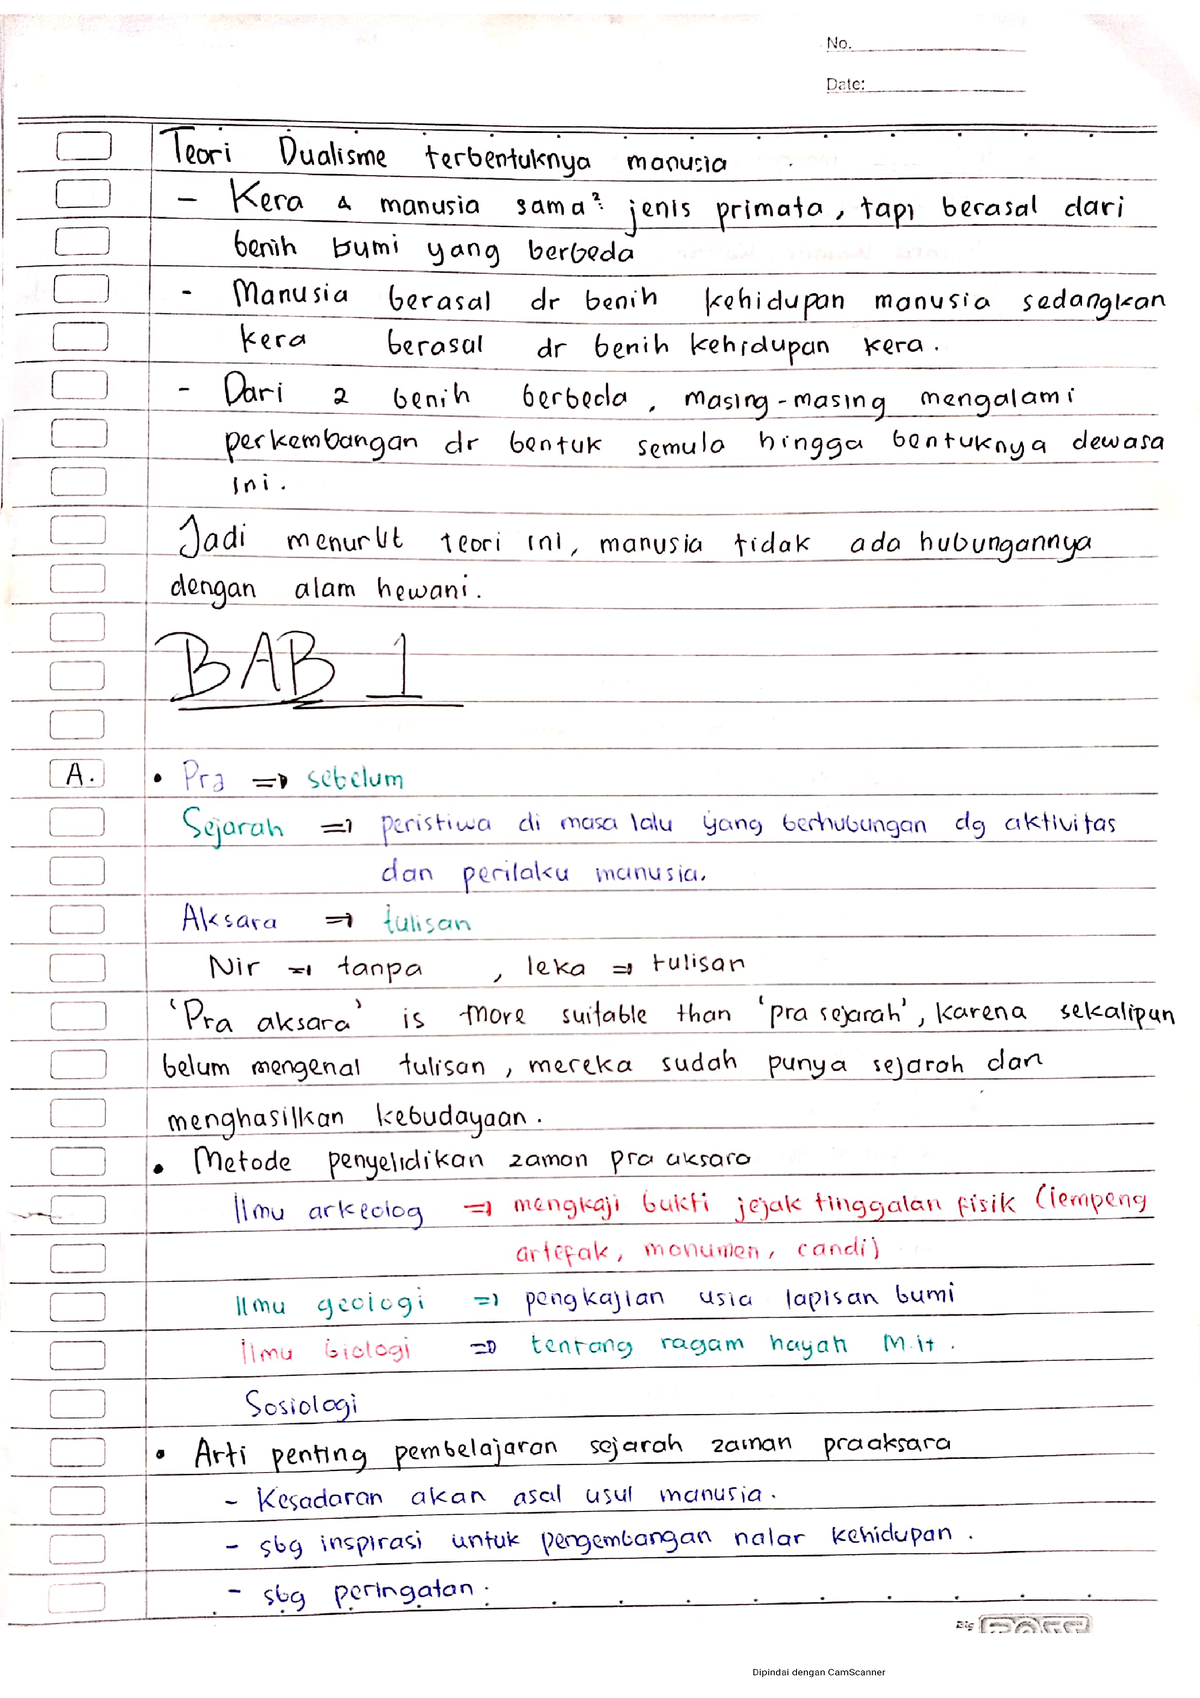 No.
Date:
Teori Dualisme terbentuknya manusia
- Kera & manusia sama² jenis primata, tapi berasal dari
benih bumi yang berbeda
- Manusia berasal dr benih kehidupan manusia sedangkan
kera berasal dr benih kehidupan kera.
- Dari 2 benih berbeda, masing-masing mengalami
perkembangan dr bentuk semula hingga bentuknya dewasa
ini.
Jadi menurut teori ini, manusia tidak ada hubungannya
dengan alam hewani.
BAB 1
A. • Pra => sebelum
Sejarah => peristiwa di masa lalu yang berhubungan dg aktivitas
dan perilaku manusia.
Aksara => tulisan
Nir => tanpa , leka => tulisan
'Pra aksara' is more suitable than 'pra sejarah', karena sekalipun
belum mengenal tulisan, mereka sudah punya sejarah dan
menghasilkan kebudayaan.
• Metode penyelidikan zaman pra aksara
Ilmu arkeolog => mengkaji bukti jejak tinggalan fisik (lempeng
artefak, monumen, candi)
Ilmu geologi => pengkajian usia lapisan bumi
Ilmu biologi => tentang ragam hayah M.it.
Sosiologi
• Arti penting pembelajaran sejarah zaman praaksara
- Kesadaran akan asal usul manusia.
- sbg inspirasi untuk pengembangan nalar kehidupan.
- sbg peringatan.
Big
Dipindai dengan CamScanner